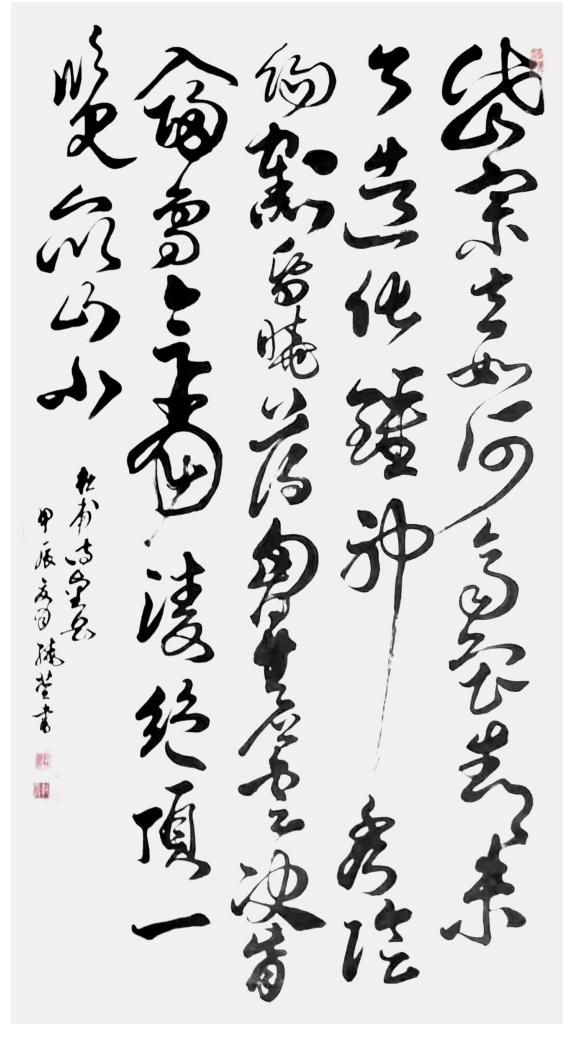 岱宗夫如何齊魯青未
了造化鍾神秀陰
陽割昏曉蕩胸生層雲決眥
入歸鳥會當淩絕頂一
覽眾山小
杜甫詩望岳
甲辰夏月 書